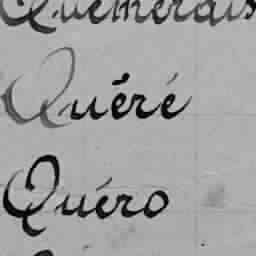 Quémérais
Quéré
Quéro